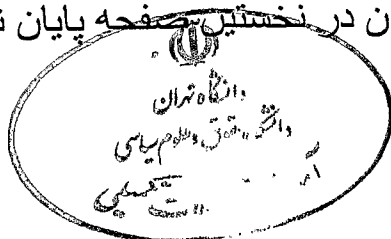 ن در نخستین صفحه پایان ن
دانشگاه تهران
دانشکده حقوق و علوم سیاسی
تکمیلی